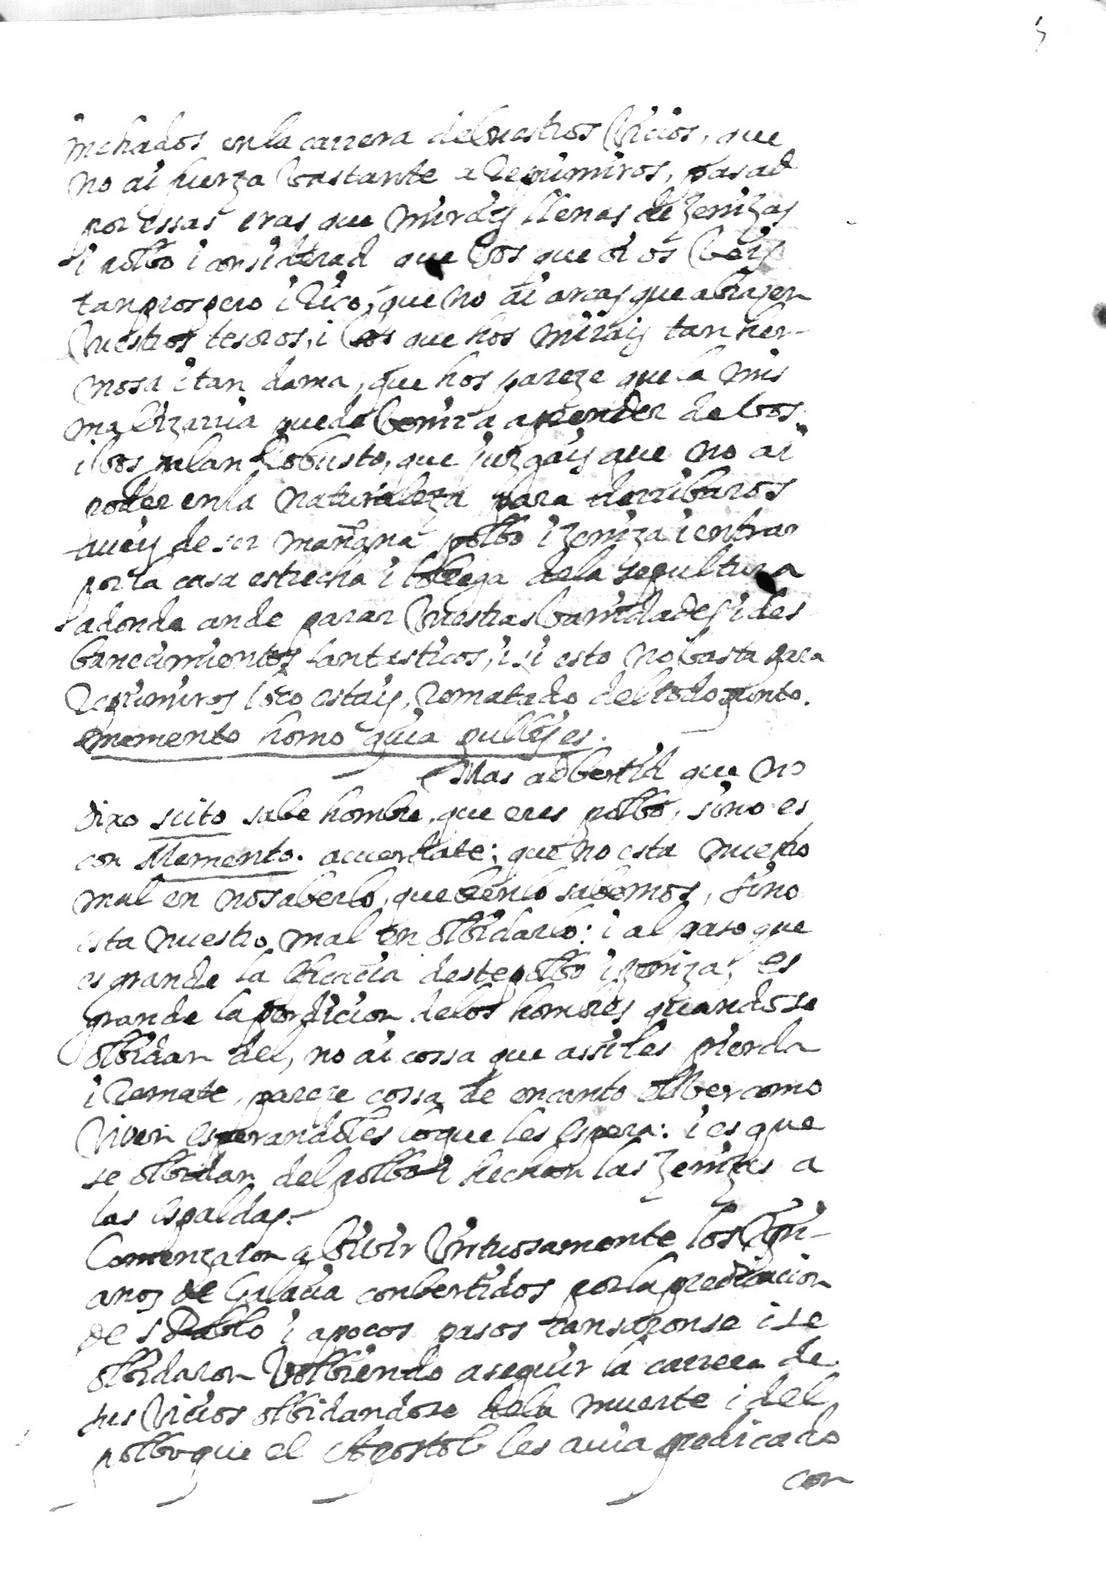 5
inchados en la carrera de vuestros vicios, que
no ai fuerza bastante a reprimiros, pasad
por essas eras que mirais llenas de zenizas
i polbo i considerad que vos que oi os beis
tan prospero i rico, que no ai arcas que abrazen
vuestros tesoros, i vos que hos mirais tan her-
mosa i tan dama, que hos pareze que la mis
ma bizarria puede benir a aprender de vos
i vos galan robusto, que juzgais que no ai
poder en la naturaleza para derribaros
aueis de ser mañana polbo i zeniza i entrar
por la casa estrecha i lobrega de la sepultura
adonde an de parar vuestras banidades i des
banecimientos fantasticos, i si esto no basta para
reprimiros loco estais, rematado del todo punto.
memento homo quia pulbis es.
Mas adbertid que no
dixo scito sabe hombre, que eres polbo, sino es
con Memento. acuerdate; que no esta nuestro
mal en no saberlo, que bien lo sabemos, sino
esta nuestro mal en olbidarlo: i al paso que
es grande la eficacia deste polbo i zeniza, es
grande la perdicion de los hombres quando se
olbidan del, no ai cossa que assi les pierda
i remate, pareze cossa de encanto el ber como
viven esperandoles lo que les espera: i es que
se olbidan del polbo i hechan las zenizas a
las espaldas.
Comenzaron a bivir virtuosamente los Xpi-
anos de Galacia conbertidos por la predicacion
de S Pablo i a pocos pasos cansaronse i se
olbidaron volbiendo a seguir la carrera de
sus vicios olbidandose de la muerte i del
polbo que el Apostol les auia predicado
con